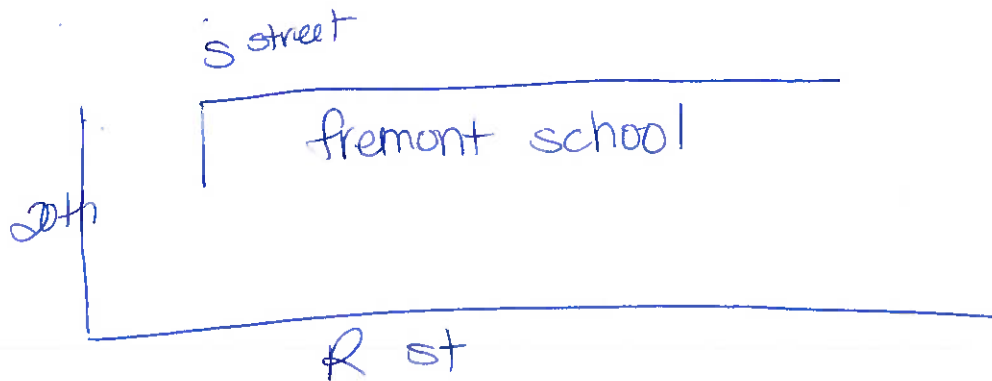 s street
fremont school
20th
R st